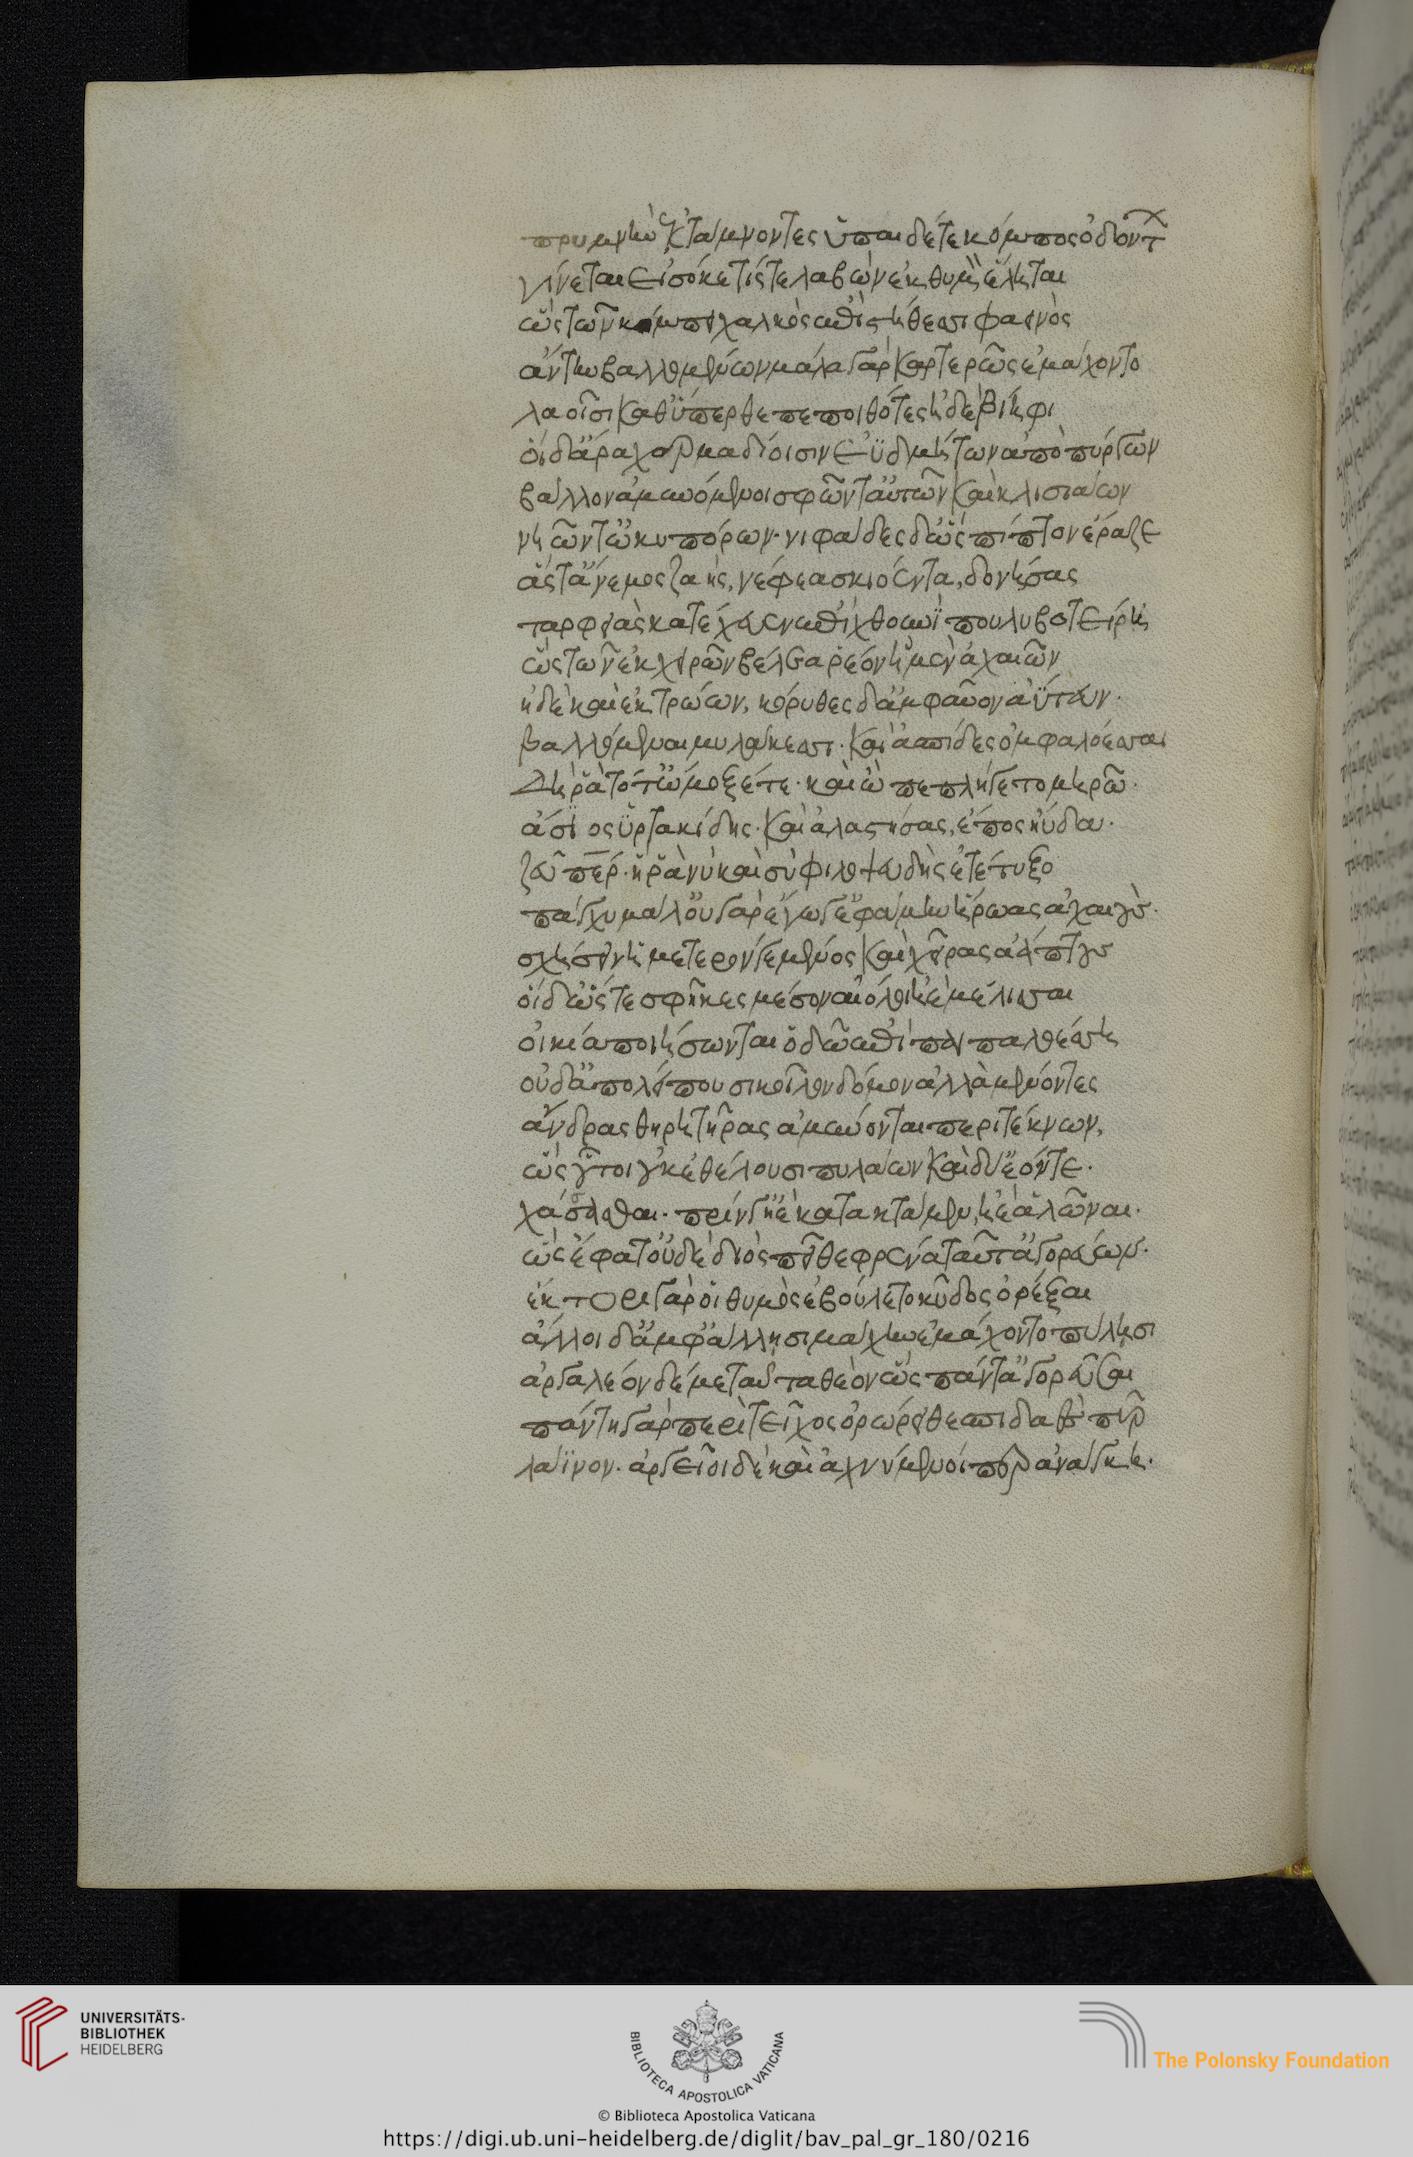 πρυμνὴν ἐκτάμνοντες ὑπαὶ δέ τε κόμπος ὀδόντ
γίνεται εἰσόκε τίς τε λαβὼν ἐκ θυμὸν ἕληται
ὣς τῶν κόμπει χαλκὸς ἐπὶ στήθεσσι φαεινὸς
ἄντην βαλλομένων μάλα γὰρ καρτερῶς ἐμάχοντο
λαοῖσι καθύπερθε πεποιθότες ἠδὲ βίηφι
οἱ δ' ἄρα χερμαδίοισιν ἐϋδμήτων ἀπὸ πύργων
βάλλον ἀμυνόμενοι σφῶν τ' αὐτῶν καὶ κλισιάων
νηῶν τ' ὠκυπόρων· νιφάδες δ' ὣς πίπτον ἔραζε
ἅς τ' ἄνεμος ζαής, νέφεα σκιόεντα, δονήσας
ταρφειὰς κατέχευεν ἐπὶ χθονὶ πουλυβοτείρη
ὣς τῶν ἐκ χειρῶν βέλεα ῥέον ἠμὲν ἀχαιῶν
ἠδὲ καὶ ἐκ τρώων, κόρυθες δ' ἀμφ' αὖον ἀΰτευν·
βαλλόμεναι μυλάκεσσι· καὶ ἀσπίδες ὀμφαλόεσσαι
Δή ῥα τότ' ᾤμωξέ τε· καὶ ὣ πεπλήγετο μηρῶ·
ἄσιος ὑρτακίδης· καὶ ἀλαστήσας, ἔπος ηὔδα·
ζεῦ περ· ἦ ῥά νυ καὶ σὺ φιλοψευδὴς ἐτέτυξο
πάγχυ μάλ' οὐ γὰρ ἔγωγ' ἐφάμην ἥρωας ἀχαιούς·
σχήσειν ἡμέτερόν γε μένος καὶ χεῖρας ἀάπτους
οἱ δ' ὥς τε σφῆκες μέσον αἰόλοι ἠὲ μέλισσαι
οἰκία ποιήσωνται ὁδῶ ἐπὶ παιπαλοέσση
οὐδ' ἀπολείπουσι κοῖλον δόμον ἀλλὰ μένοντες
ἄνδρας θηρητῆρας ἀμύνονται περὶ τέκνων,
ὣς οὗτοι οὐκ ἐθέλουσι πυλάων καὶ δύ' ἐόντε·
χάσσασθαι· πρίν γ' ἠὲ κατακτάμεν, ἠὲ ἁλῶναι·
ὣς ἔφατ' οὐδὲ διὸς πεῖθε φρένα ταῦτ' ἀγορεύων·
ἕκτορι γάρ οἱ θυμὸς ἐβούλετο κῦδος ὀρέξαι
ἄλλοι δ' ἀμφ' ἄλλησι μάχην ἐμάχοντο πύλησι
ἀργαλέον δέ με ταῦτα θεὸν ὣς πάντ' ἀγορεῦσαι
πάντη γὰρ περὶ τεῖχος ὀρώρει θεσπιδαὲς πῦρ
λάϊνον· ἀργεῖοι δὲ καὶ ἀχνύμενοί περ ἀνάγκη·
UNIVERSITÄTS-
BIBLIOTHEK
HEIDELBERG
BIBLIOTECA APOSTOLICA VATICANA
The Polonsky Foundation
© Biblioteca Apostolica Vaticana
https://digi.ub.uni-heidelberg.de/diglit/bav_pal_gr_180/0216